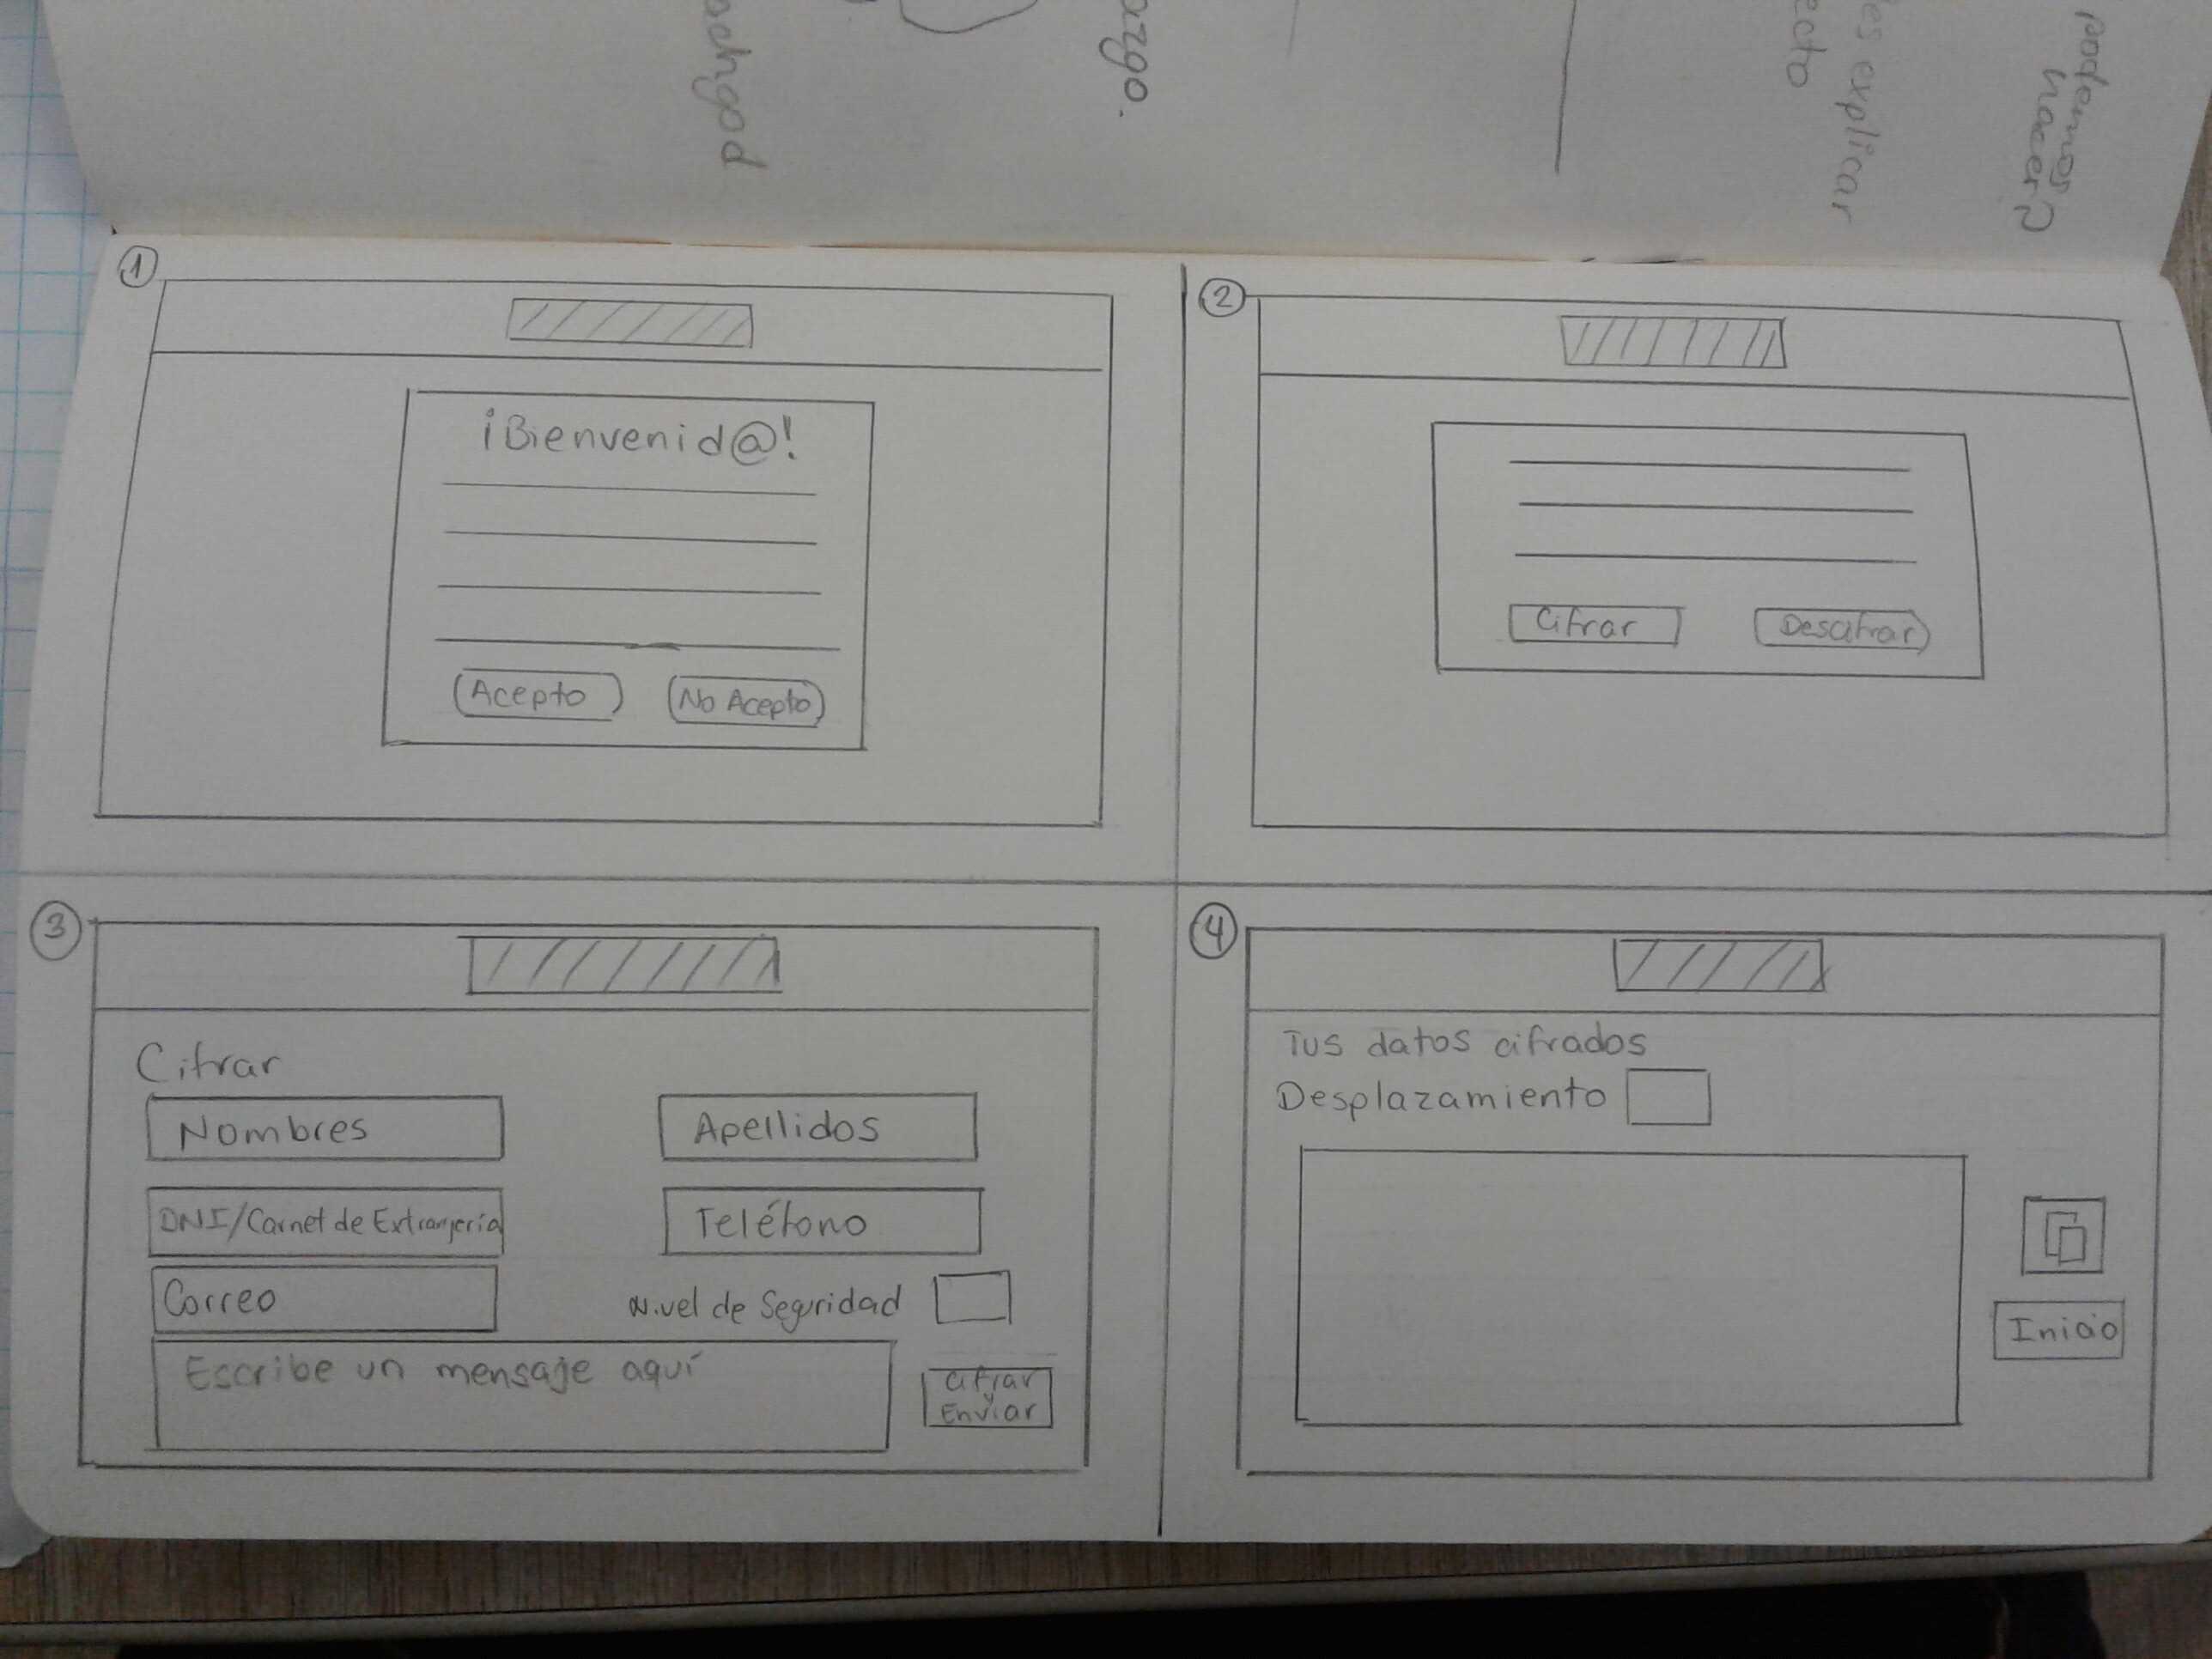 podemos
hacer?
es explicar
ecto
azgo.
1
¡Bienvenid@!
Acepto
No Acepto
2
Cifrar
Descifrar
3
Cifrar
Nombres
Apellidos
DNI/Carnet de Extranjería
Teléfono
Correo
Nivel de Seguridad
Escribe un mensaje aquí
Cifrar
y
Enviar
4
Tus datos cifrados
Desplazamiento
Inicio